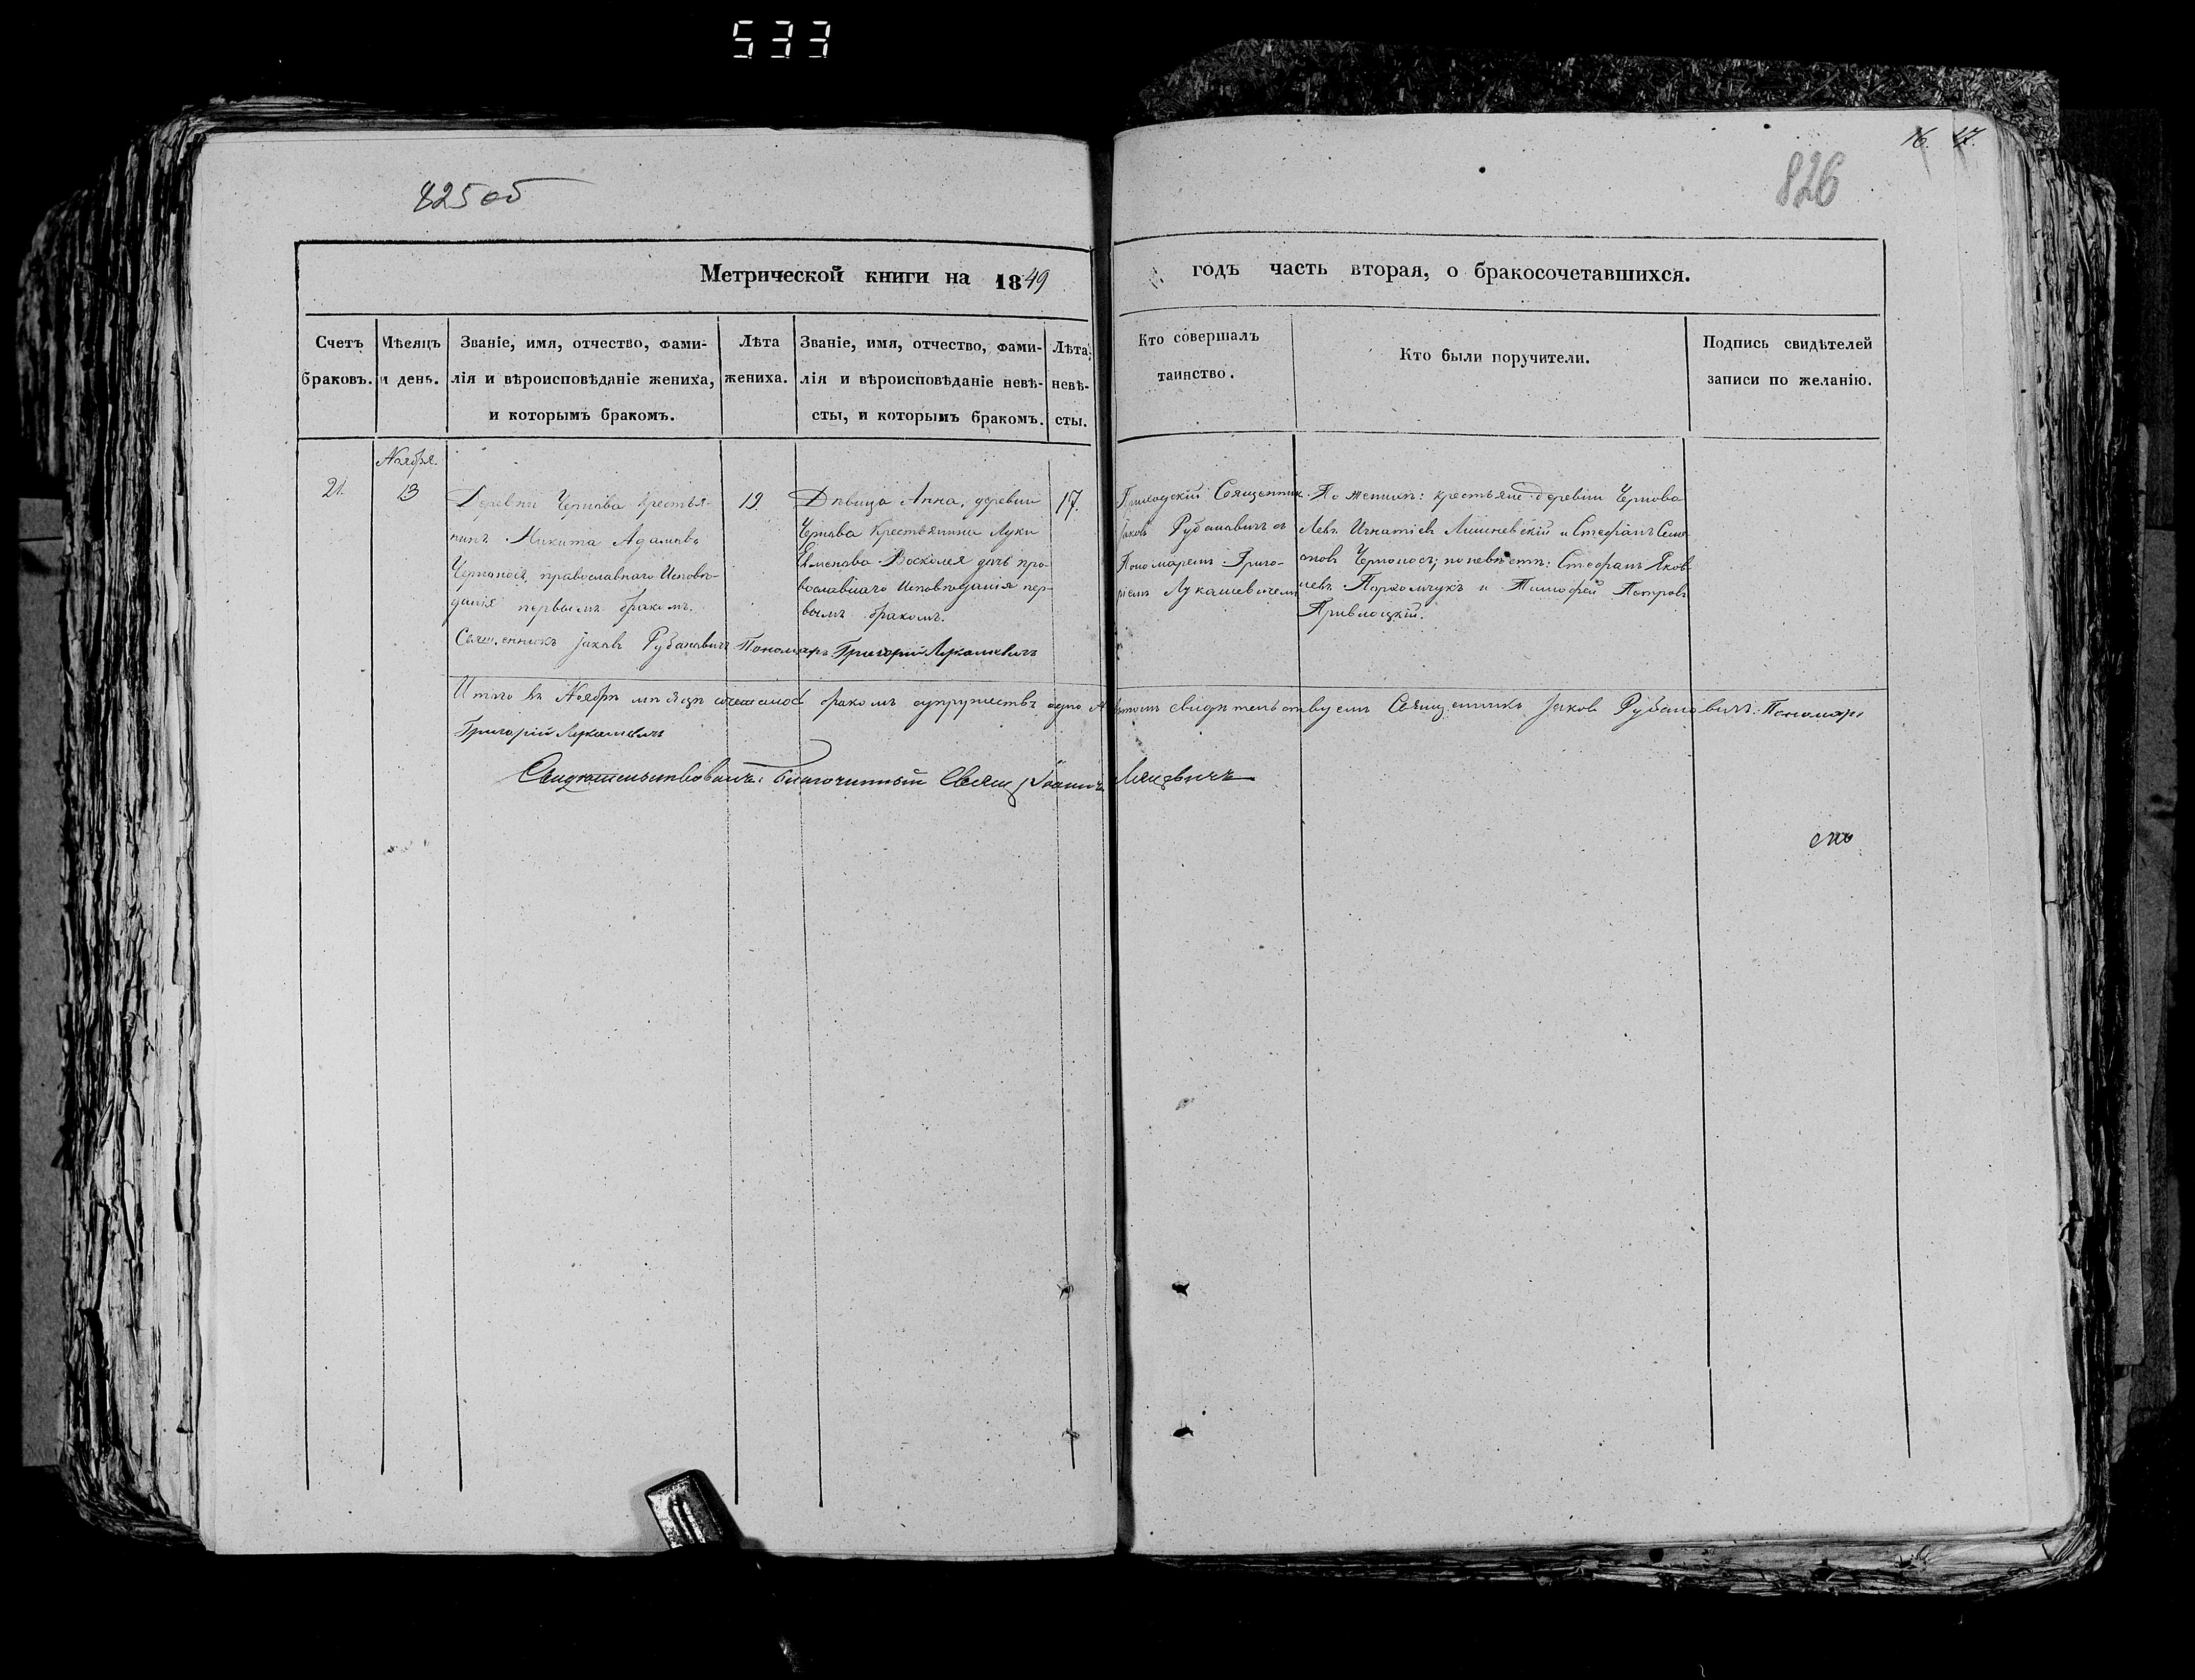 533
825об
826
16. 17.
Метрической книги на 1849
годъ часть вторая, о бракосочетавшихся.
Счетъ
браковъ.
Мѣсяцъ
и день.
Званіе, имя, отчество, фами-
лія и вѣроисповѣданіе жениха,
и которымъ бракомъ.
Лѣта
жениха.
Званіе, имя, отчество, фами-
лія и вѣроисповѣданіе невѣ-
сты, и которымъ бракомъ.
Лѣта
невѣ-
сты.
Кто совершалъ
таинство.
Кто были поручители.
Подпись свидѣтелей
записи по желанію.
Ноября.
21.
13
Деревни Чернова Крестья-
нинъ Никита Адамовъ
Черноносъ, православнаго Исповѣ-
данія первымъ бракомъ.
19.
Дѣвица Анна, деревни
Чернова Крестьянина Луки
Семенова дочь пра-
вославнаго Исповѣданія пер-
вымъ бракомъ.
17.
Приходскій Священник
Іаковъ Рубановичъ съ
Пономаремъ Григо-
ріемъ Лукашевичемъ
По женихѣ: крестьяне деревни Чернова
Левъ Игнатіевъ Лишневскій и Стефанъ Семе-
новъ Черноносъ; по невѣстѣ: Стефанъ Яков-
левъ Пархомчукъ и Тимофей Петровъ
Привлоцкій.
Священникъ Іаковъ Рубановичъ Пономарь Григорій Лукашевичъ
Итого въ Ноябрѣ мѣсяцѣ сочеталось бракомъ супружествъ одно. А въ томъ свидѣтельствуемъ Священникъ Іаковъ Рубановичъ. Пономарь
Григорій Лукашевичъ
Свидѣтельствовалъ: Благочинный Свящ. Іоаннъ